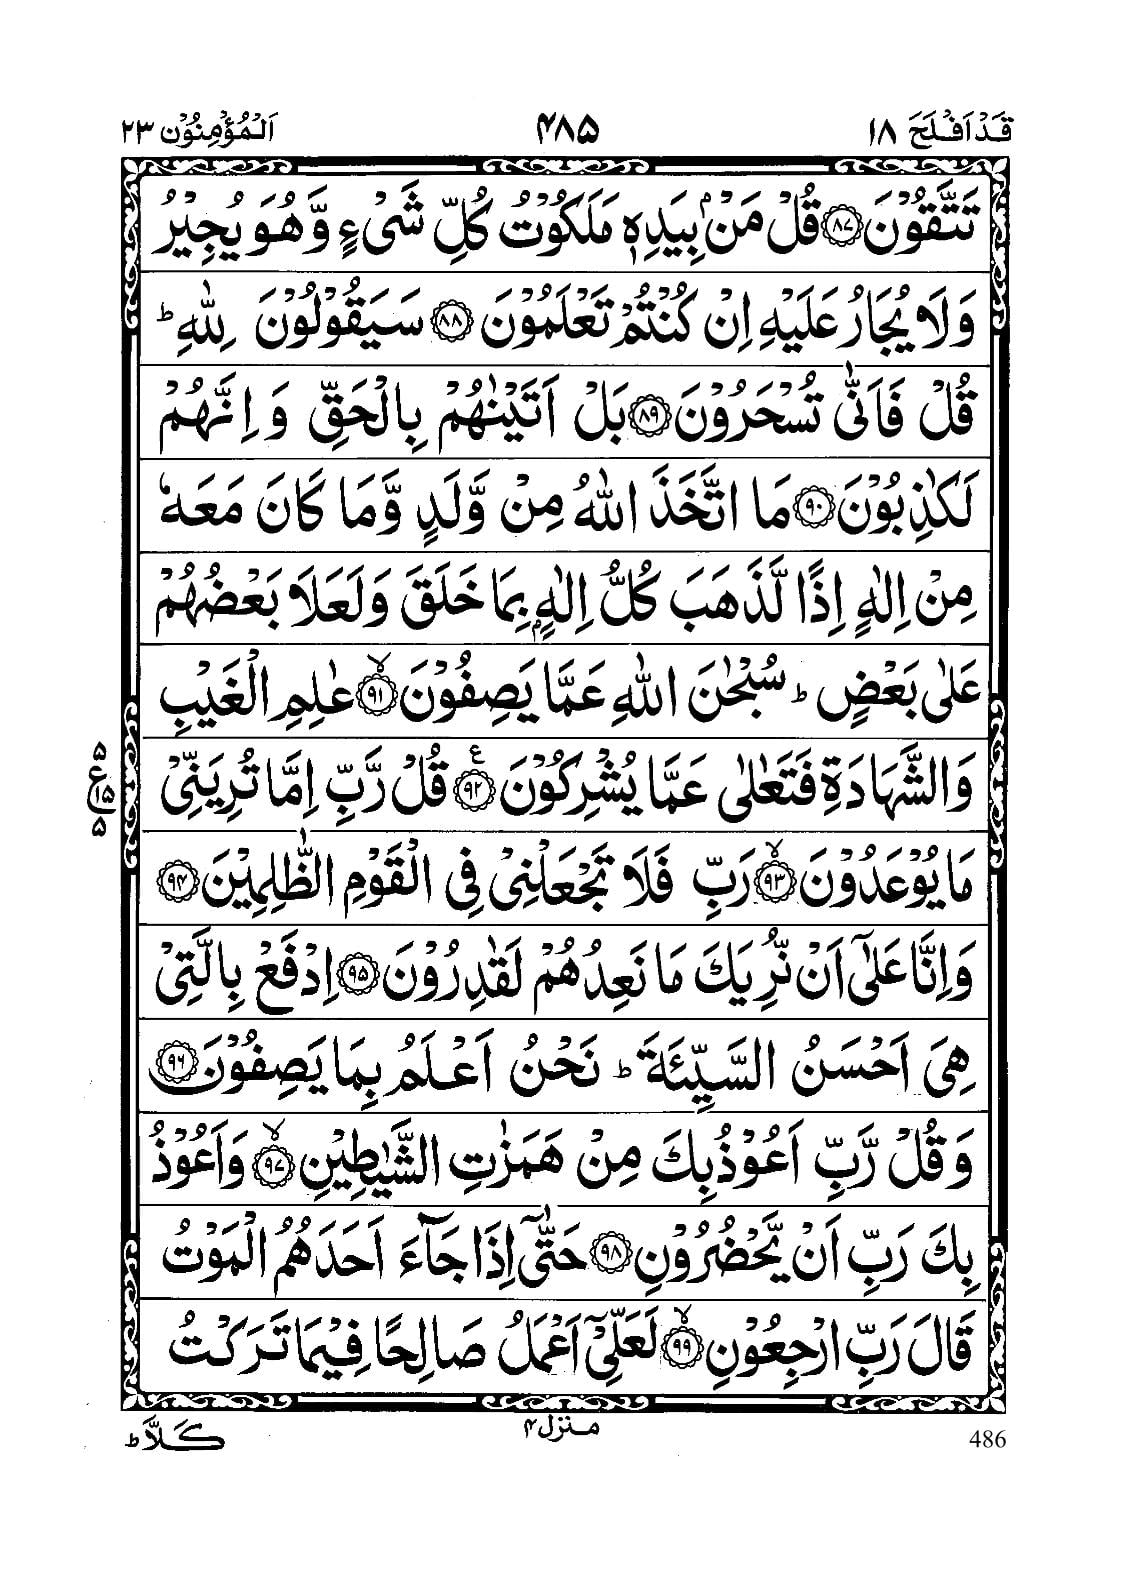 قَدْ اَفْلَحَ ۱۸ ۴۸۵ اَلْمُؤْمِنُوْن ۲۳
تَتَّقُوْنَ ۸۷ قُلْ مَنْۢ بِيَدِهٖ مَلَكُوْتُ كُلِّ شَيْءٍ وَّهُوَ يُجِيْرُ
وَلَا يُجَارُ عَلَيْهِ اِنْ كُنْتُمْ تَعْلَمُوْنَ ۸۸ سَيَقُوْلُوْنَ لِلّٰهِ ؕ
قُلْ فَاَنّٰى تُسْحَرُوْنَ ۸۹ بَلْ اَتَيْنٰهُمْ بِالْحَقِّ وَاِنَّهُمْ
لَكٰذِبُوْنَ ۹۰ مَا اتَّخَذَ اللّٰهُ مِنْ وَّلَدٍ وَّمَا كَانَ مَعَهٗ
مِنْ اِلٰهٍ اِذًا لَّذَهَبَ كُلُّ اِلٰهٍۭ بِمَا خَلَقَ وَلَعَلَا بَعْضُهُمْ
عَلٰى بَعْضٍ ؕ سُبْحٰنَ اللّٰهِ عَمَّا يَصِفُوْنَ ۙ۹۱ عٰلِمِ الْغَيْبِ
وَالشَّهَادَةِ فَتَعٰلٰى عَمَّا يُشْرِكُوْنَ ۹۲ ع قُلْ رَّبِّ اِمَّا تُرِيَنِّيْ
۵ ع ۱۵ ۵
مَا يُوْعَدُوْنَ ۙ۹۳ رَبِّ فَلَا تَجْعَلْنِيْ فِي الْقَوْمِ الظّٰلِمِيْنَ ۹۴
وَاِنَّا عَلٰٓى اَنْ نُّرِيَكَ مَا نَعِدُهُمْ لَقٰدِرُوْنَ ۹۵ اِدْفَعْ بِالَّتِيْ
هِيَ اَحْسَنُ السَّيِّئَةَ ؕ نَحْنُ اَعْلَمُ بِمَا يَصِفُوْنَ ۹۶
وَقُلْ رَّبِّ اَعُوْذُ بِكَ مِنْ هَمَزٰتِ الشَّيٰطِيْنِ ۙ۹۷ وَاَعُوْذُ
بِكَ رَبِّ اَنْ يَّحْضُرُوْنِ ۹۸ حَتّٰٓى اِذَا جَآءَ اَحَدَهُمُ الْمَوْتُ
قَالَ رَبِّ ارْجِعُوْنِ ۙ۹۹ لَعَلِّيْٓ اَعْمَلُ صَالِحًا فِيْمَا تَرَكْتُ
كَلَّا ؕ منزل ۴ 486